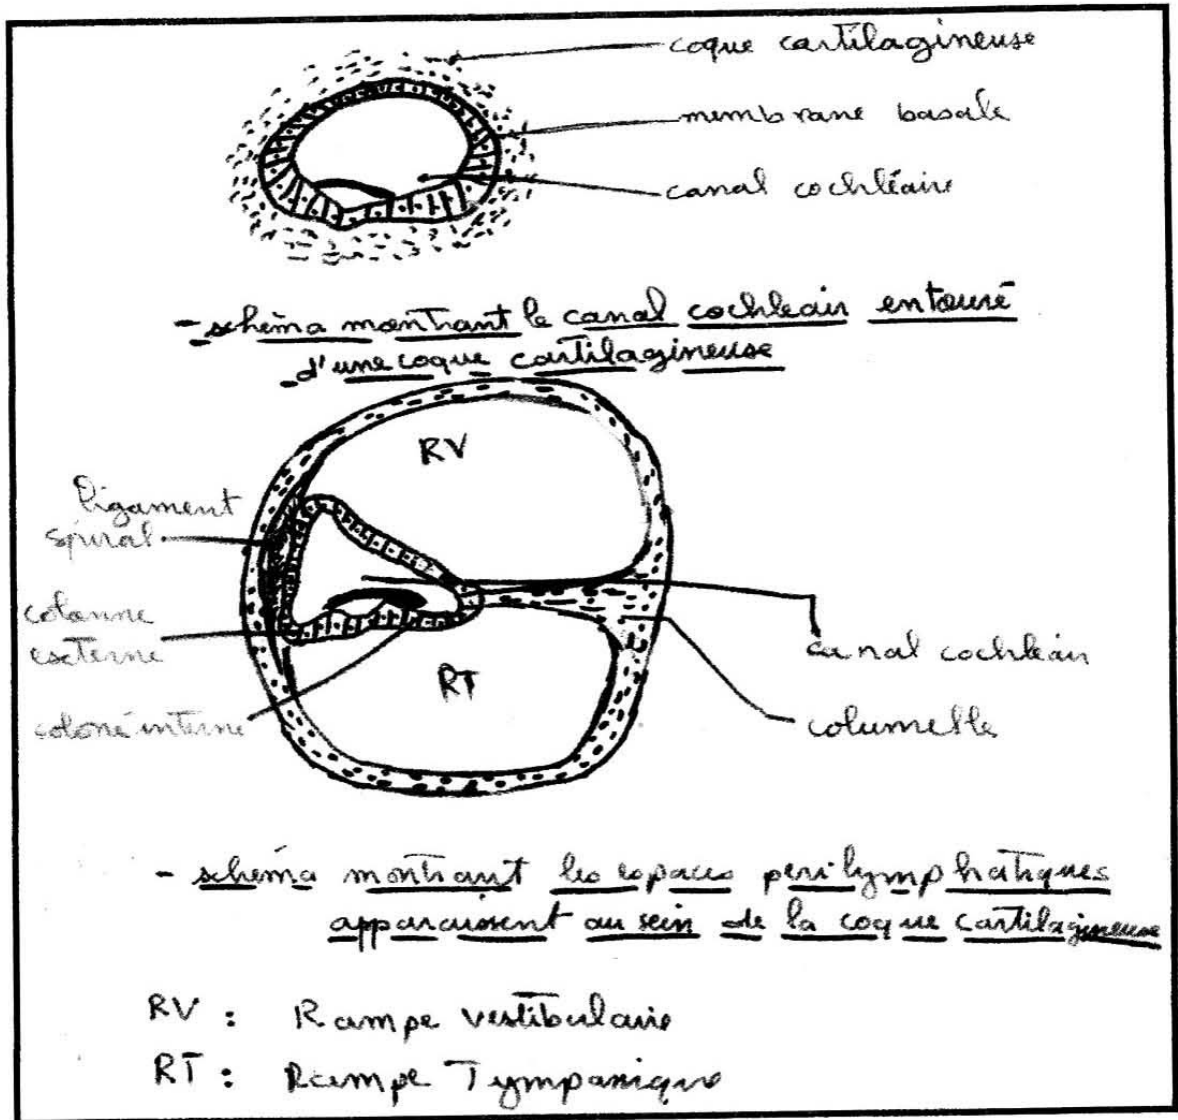 coque cartilagineuse
membrane basale
canal cochléaire
- schéma montrant le canal cochleair entouré
d'une coque cartilagineuse
RV
ligament
spiral
colonne
externe
RT
canal cochleair
coloné interne
columelle
- schéma montrant les espaces perilymphatiques
apparaissent au sein de la coque cartilagineuse
RV : Rampe vestibulaire
RT : Rampe Tympanique